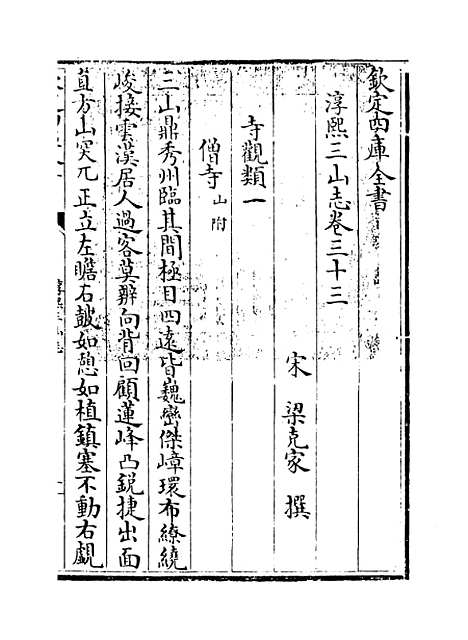 欽定四庫全書
淳熙三山志卷三十三
宋 梁克家 撰
寺觀類一
僧寺山附
三山鼎秀州臨其間極目四遠皆巍巒傑嶂環布繚繞
峻接雲漢居人過客莫辨向背回顧蓮峰凸銳捷出面
直方山突兀正立左瞻右皷如憩如植鎮塞不動右覷